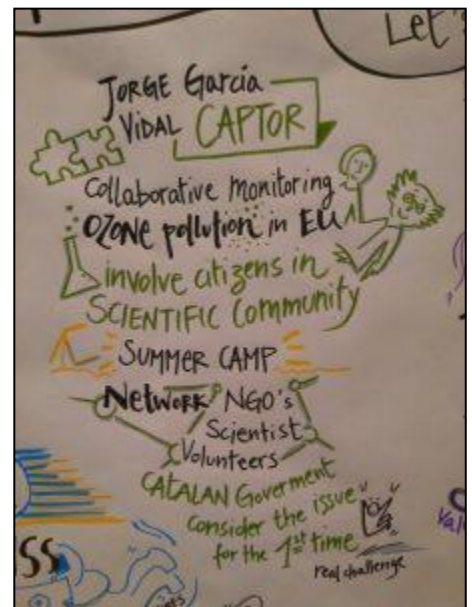 Let's
JORGE García
VIDAL CAPTOR
Collaborative monitoring
OZONE pollution in EU
involve citizens in
SCIENTIFIC Community
SUMMER CAMP
Network NGO's
Scientist
Volunteers
CATALAN Goverment
consider the issue
for the 1st time
real challenge